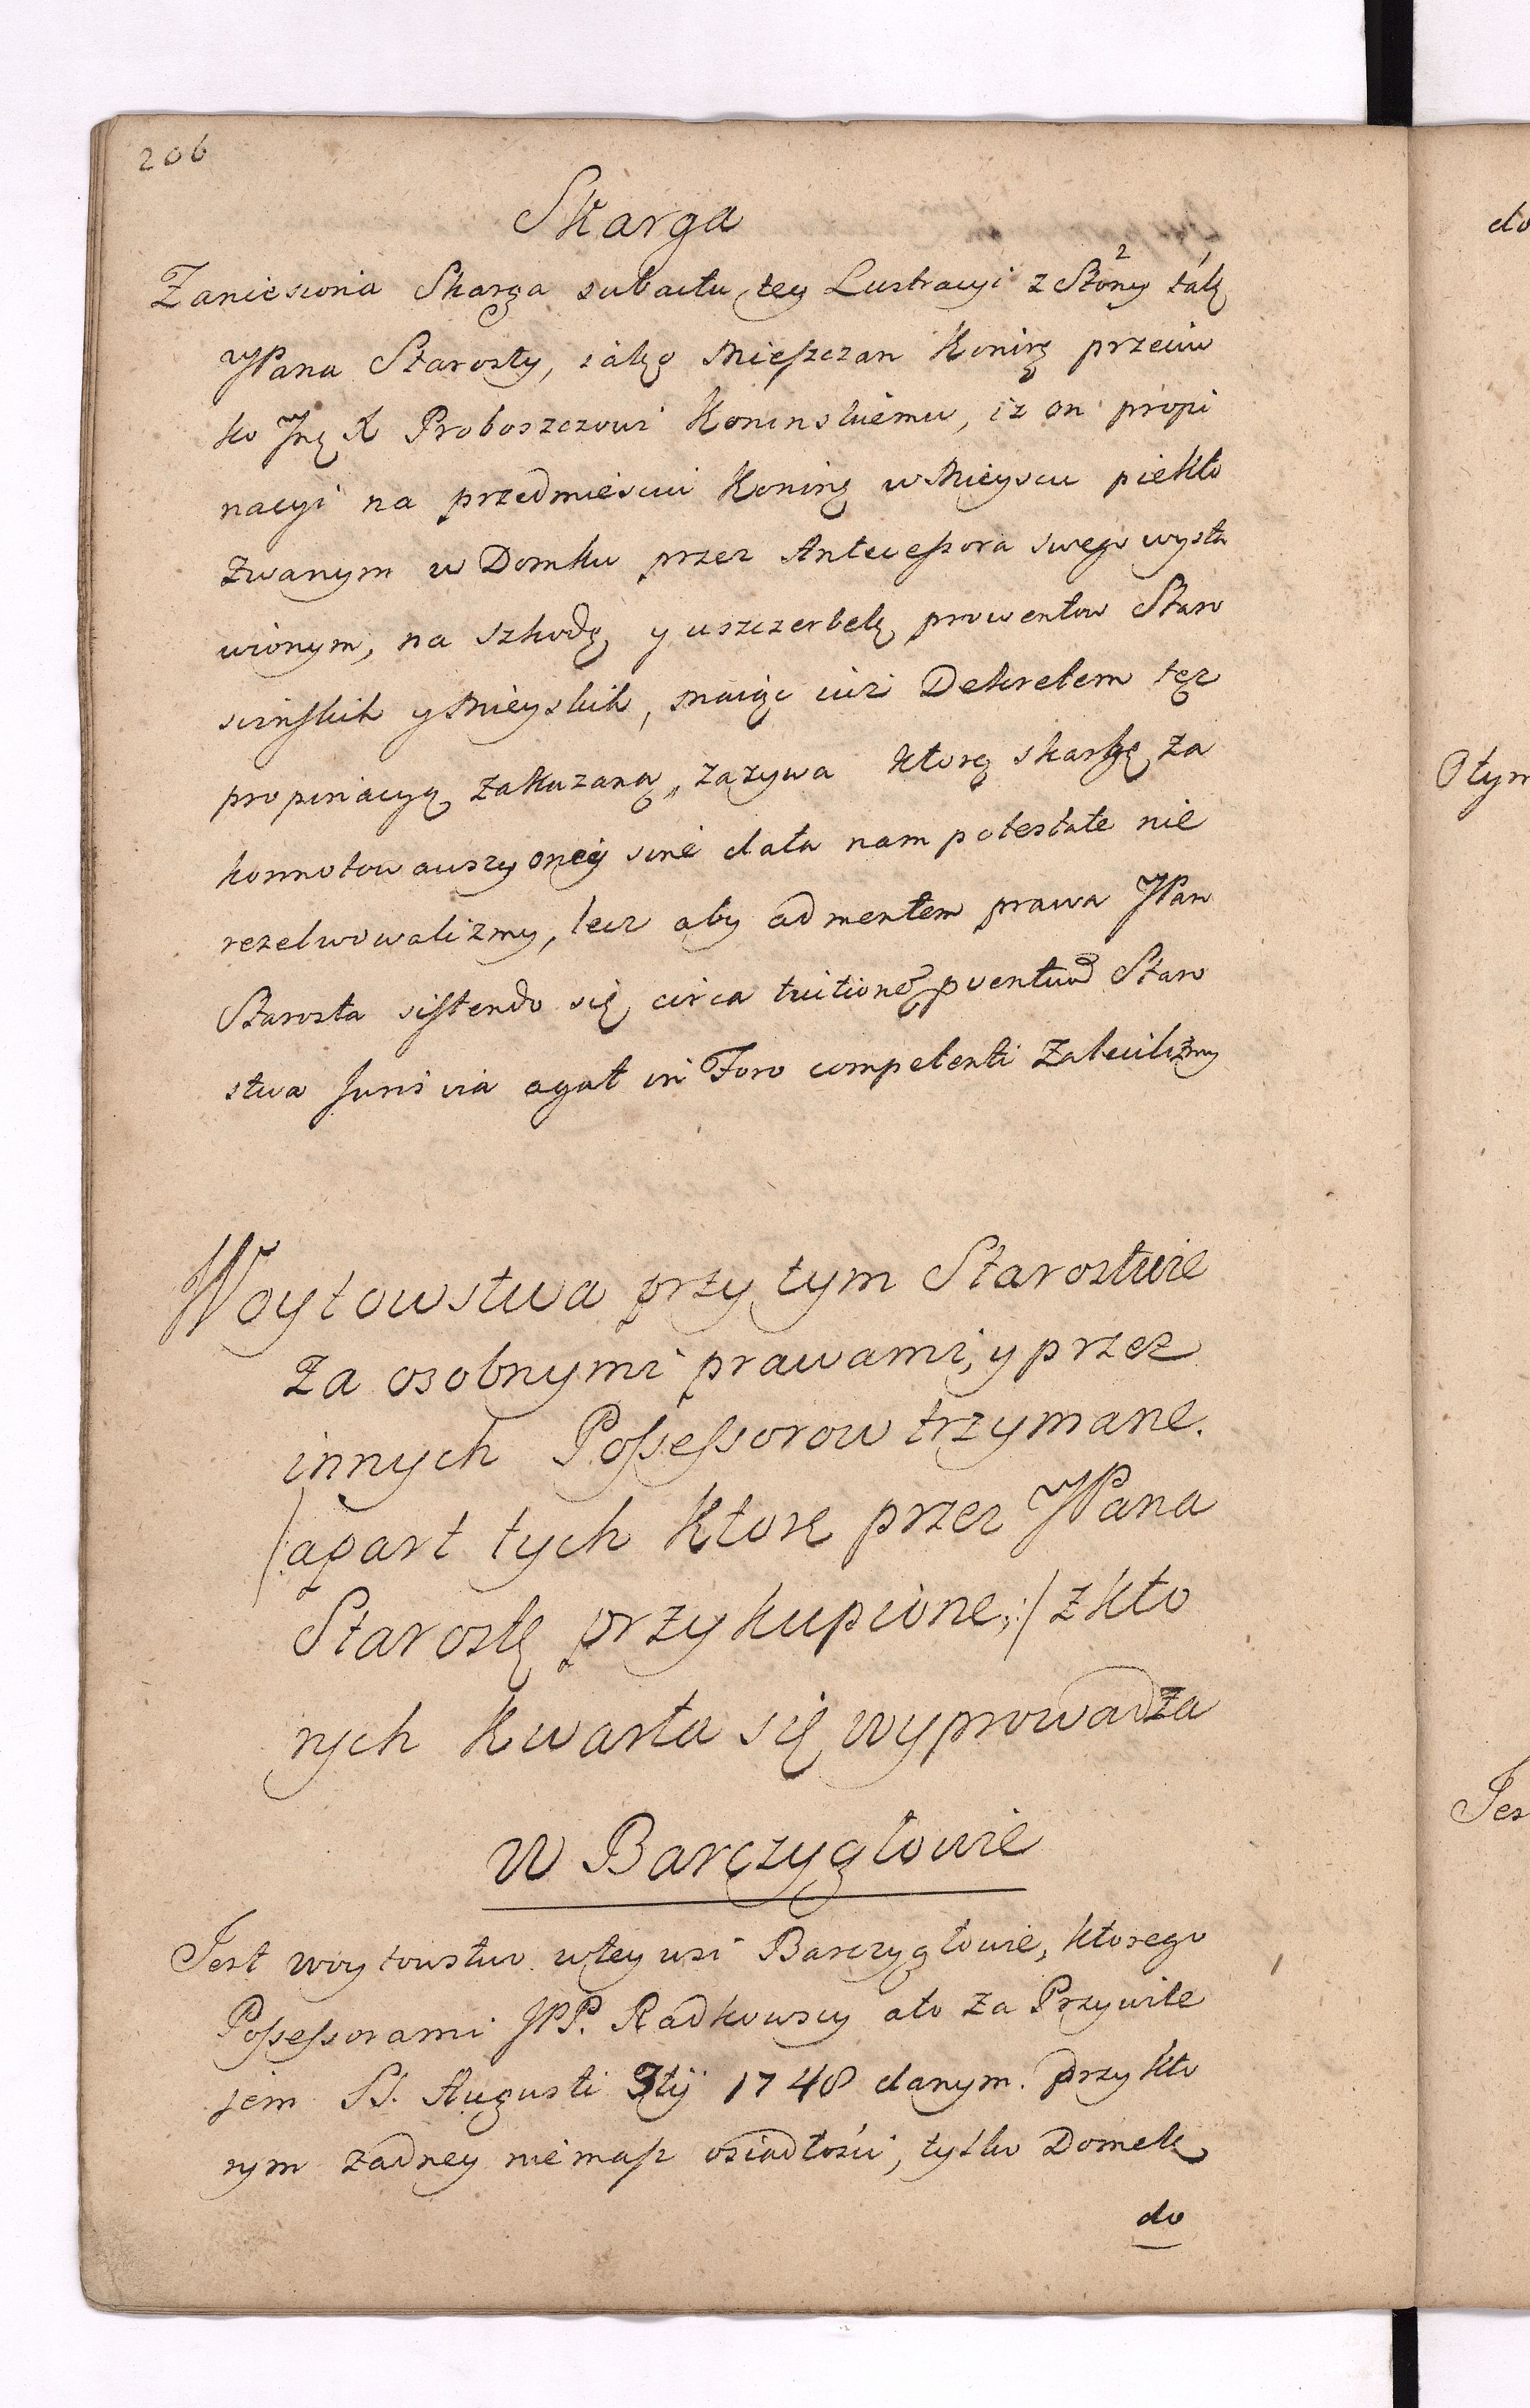 206
Skarga
Zaniesiona Skarga subactu tey Lustracyi z Strony tak
JPana Starosty, iako Mieszczan Konin: przeciw
ko Jmę X Proboszczowi Koninskiemu, iż on propi
nacyi na przedmiesciu Konin: w Mieyscu piekło
zwanym w Domku przez Antecessora swego wysta
wionym, na szkodę y uszczerbek prowentow Staro
scinskich y Mieyskich, maiąc iuż Dekretem tęż
propinacyą zakazaną, zażywa którą skargę za
konnotowawszy oney sine data nam potestate nie
rezelwowalizmy, lecz aby ad mentem prawa JPan
Starosta sistendo się circa tuitionę pventuũ Staro
stwa Juris via agat in Foro competenti zalecilizmy
Woytowstwa przy tym Starostwie
za osobnymi prawami, y przez
innych Possessorow trzymane.
/:apart tych ktore przez JPana
Starostę przykupione:/ z kto
rych kwarta się wyprowadza
w Barczygłowie
Jest woytowstwo w tey wsi Barczygłowie, ktorego
Possessorami JPP. Radkowscy ato za Przywile
jem SS. Augusti 3tij 1748 danym. przy kto
rym żadney niemasz osiadłości, tylko Domek
do
do
Otym
Jes